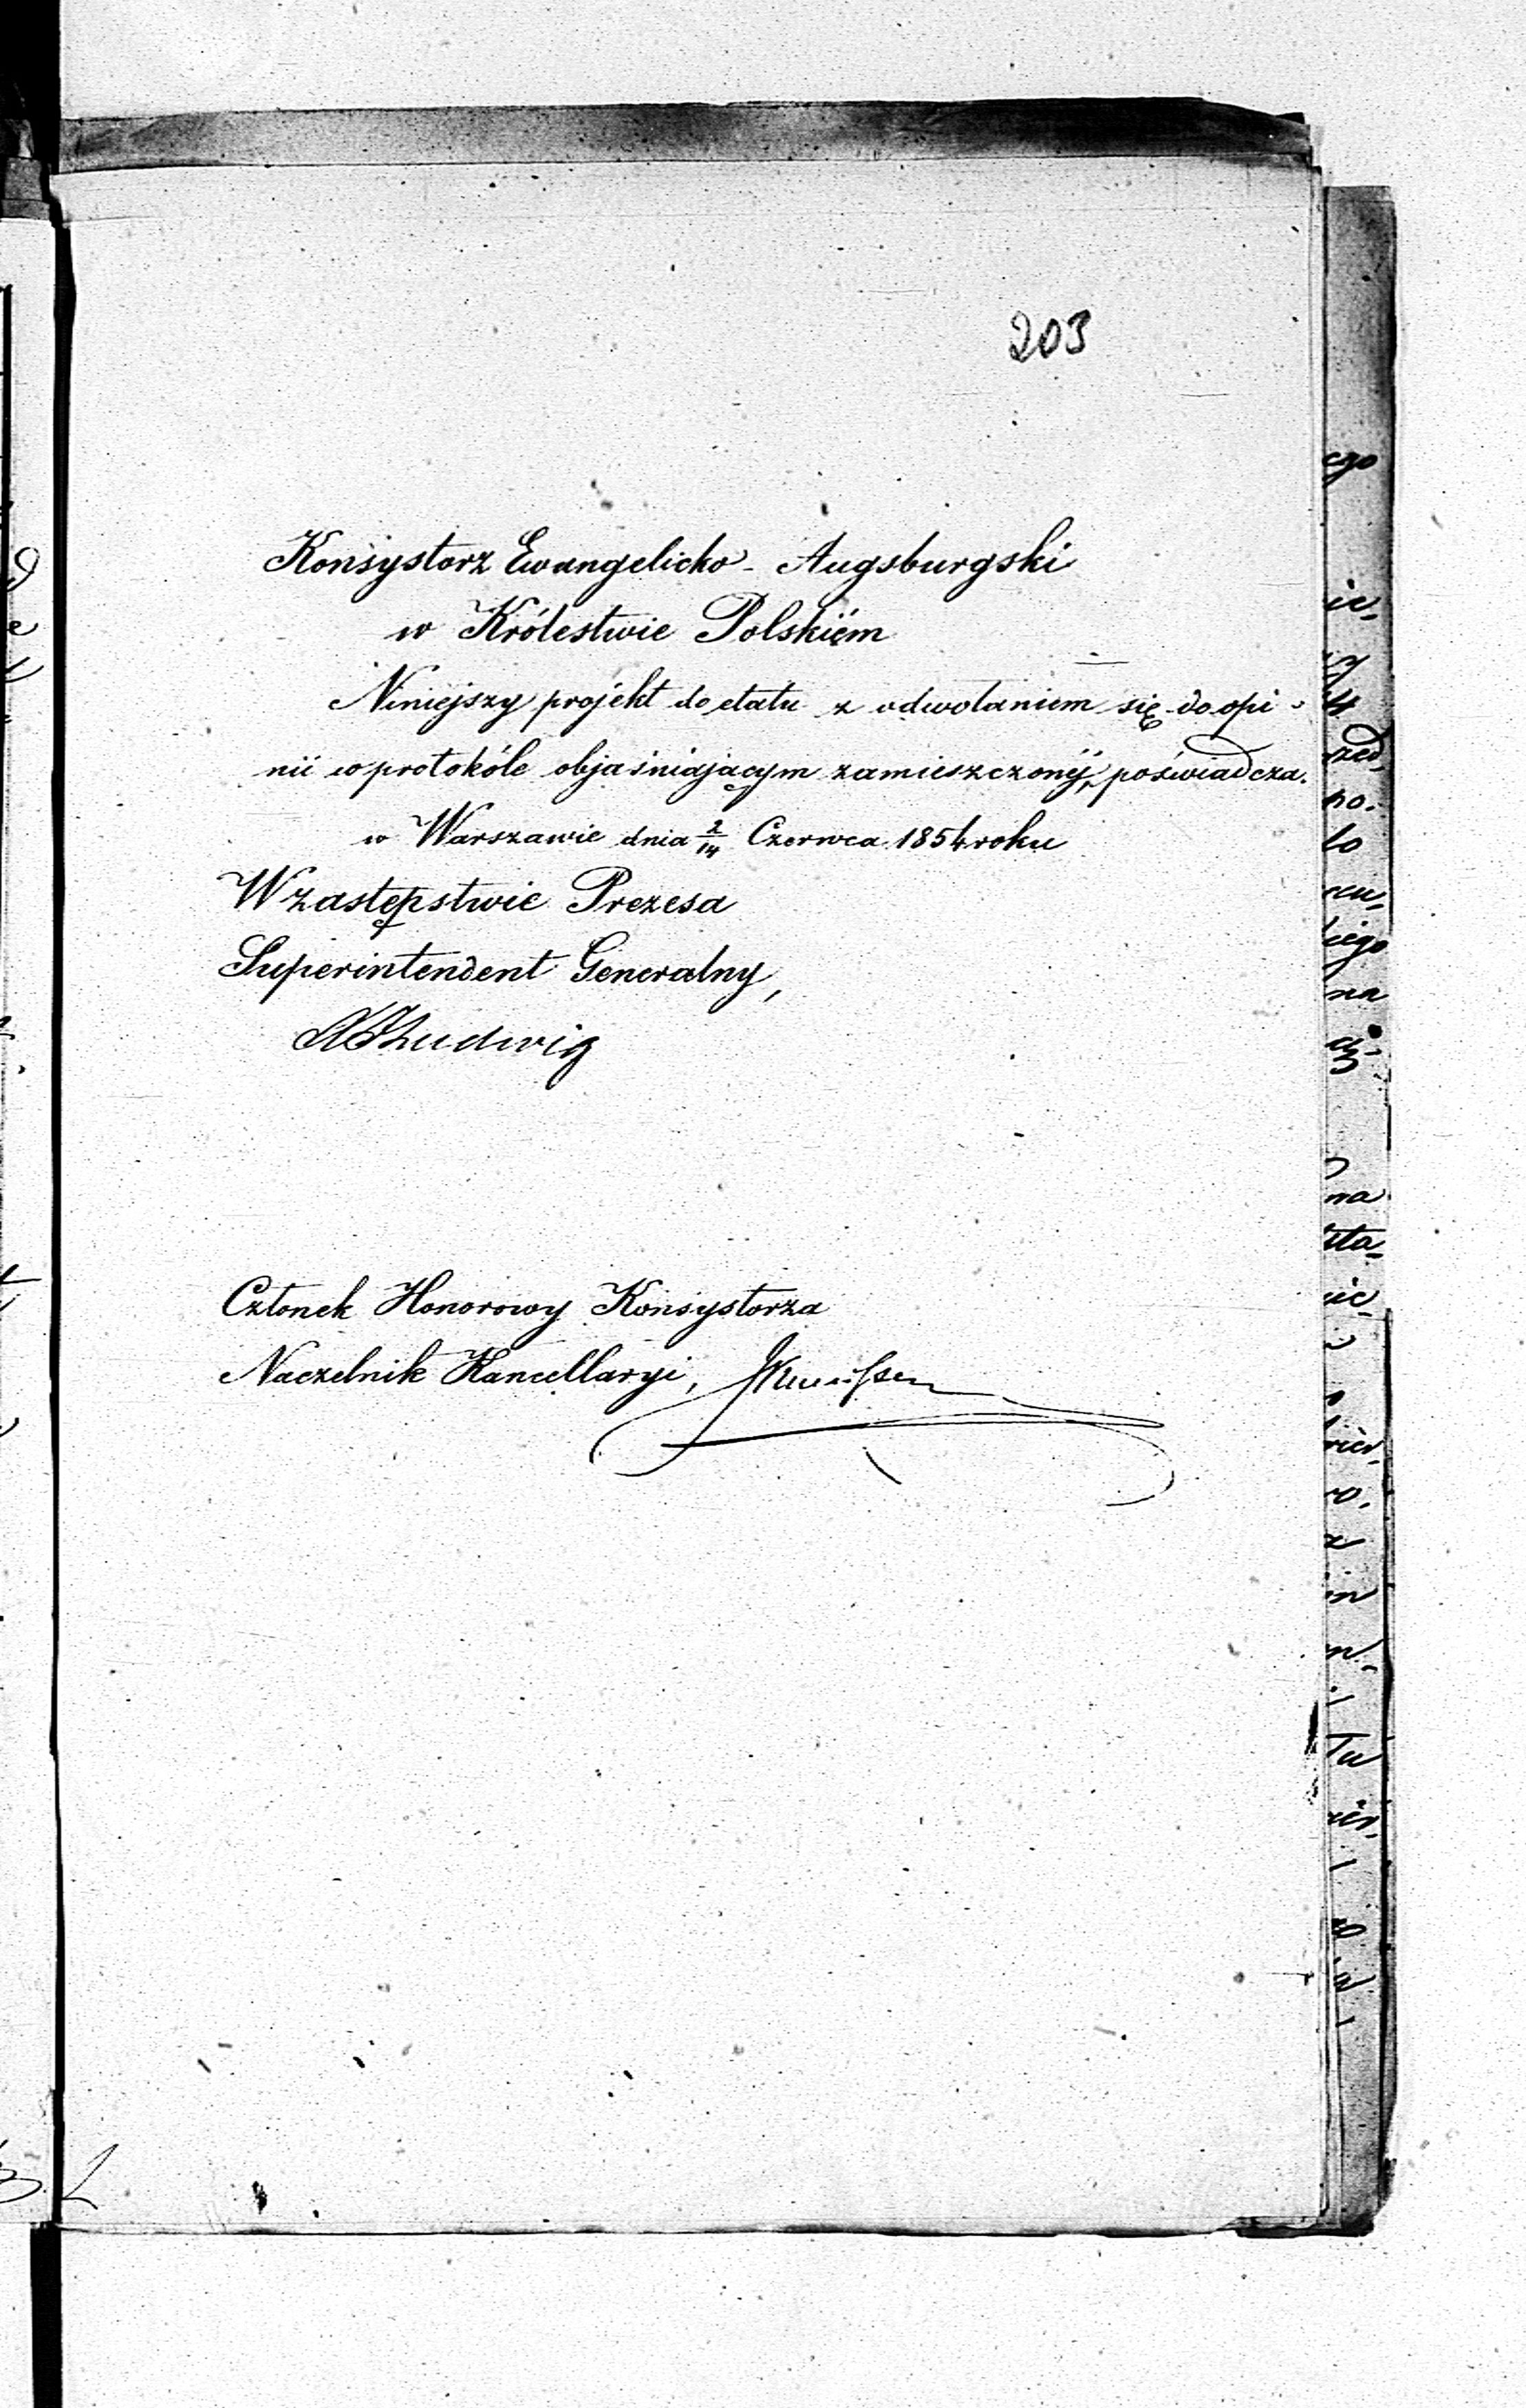 203
Konsystorz Ewangelicko-Augsburgski
w Królestwie Polskiém
Niniejszy projekt do etatu z odwołaniem się do opi-
nii w protokóle objaśniającym zamieszczonéj, poświadcza.
w Warszawie dnia 2/14 Czerwca 1854 roku
W zastępstwie Prezesa
Superintendent Generalny,
Ludwig
Członek Honorowy Konsystorza
Naczelnik Kancellaryi,